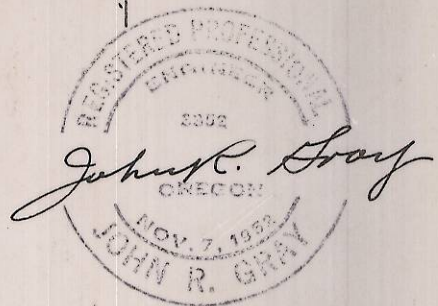 REGISTERED PROFESSIONAL
ENGINEER
2352
John R. Gray
OREGON
NOV. 7, 1952
JOHN R. GRAY